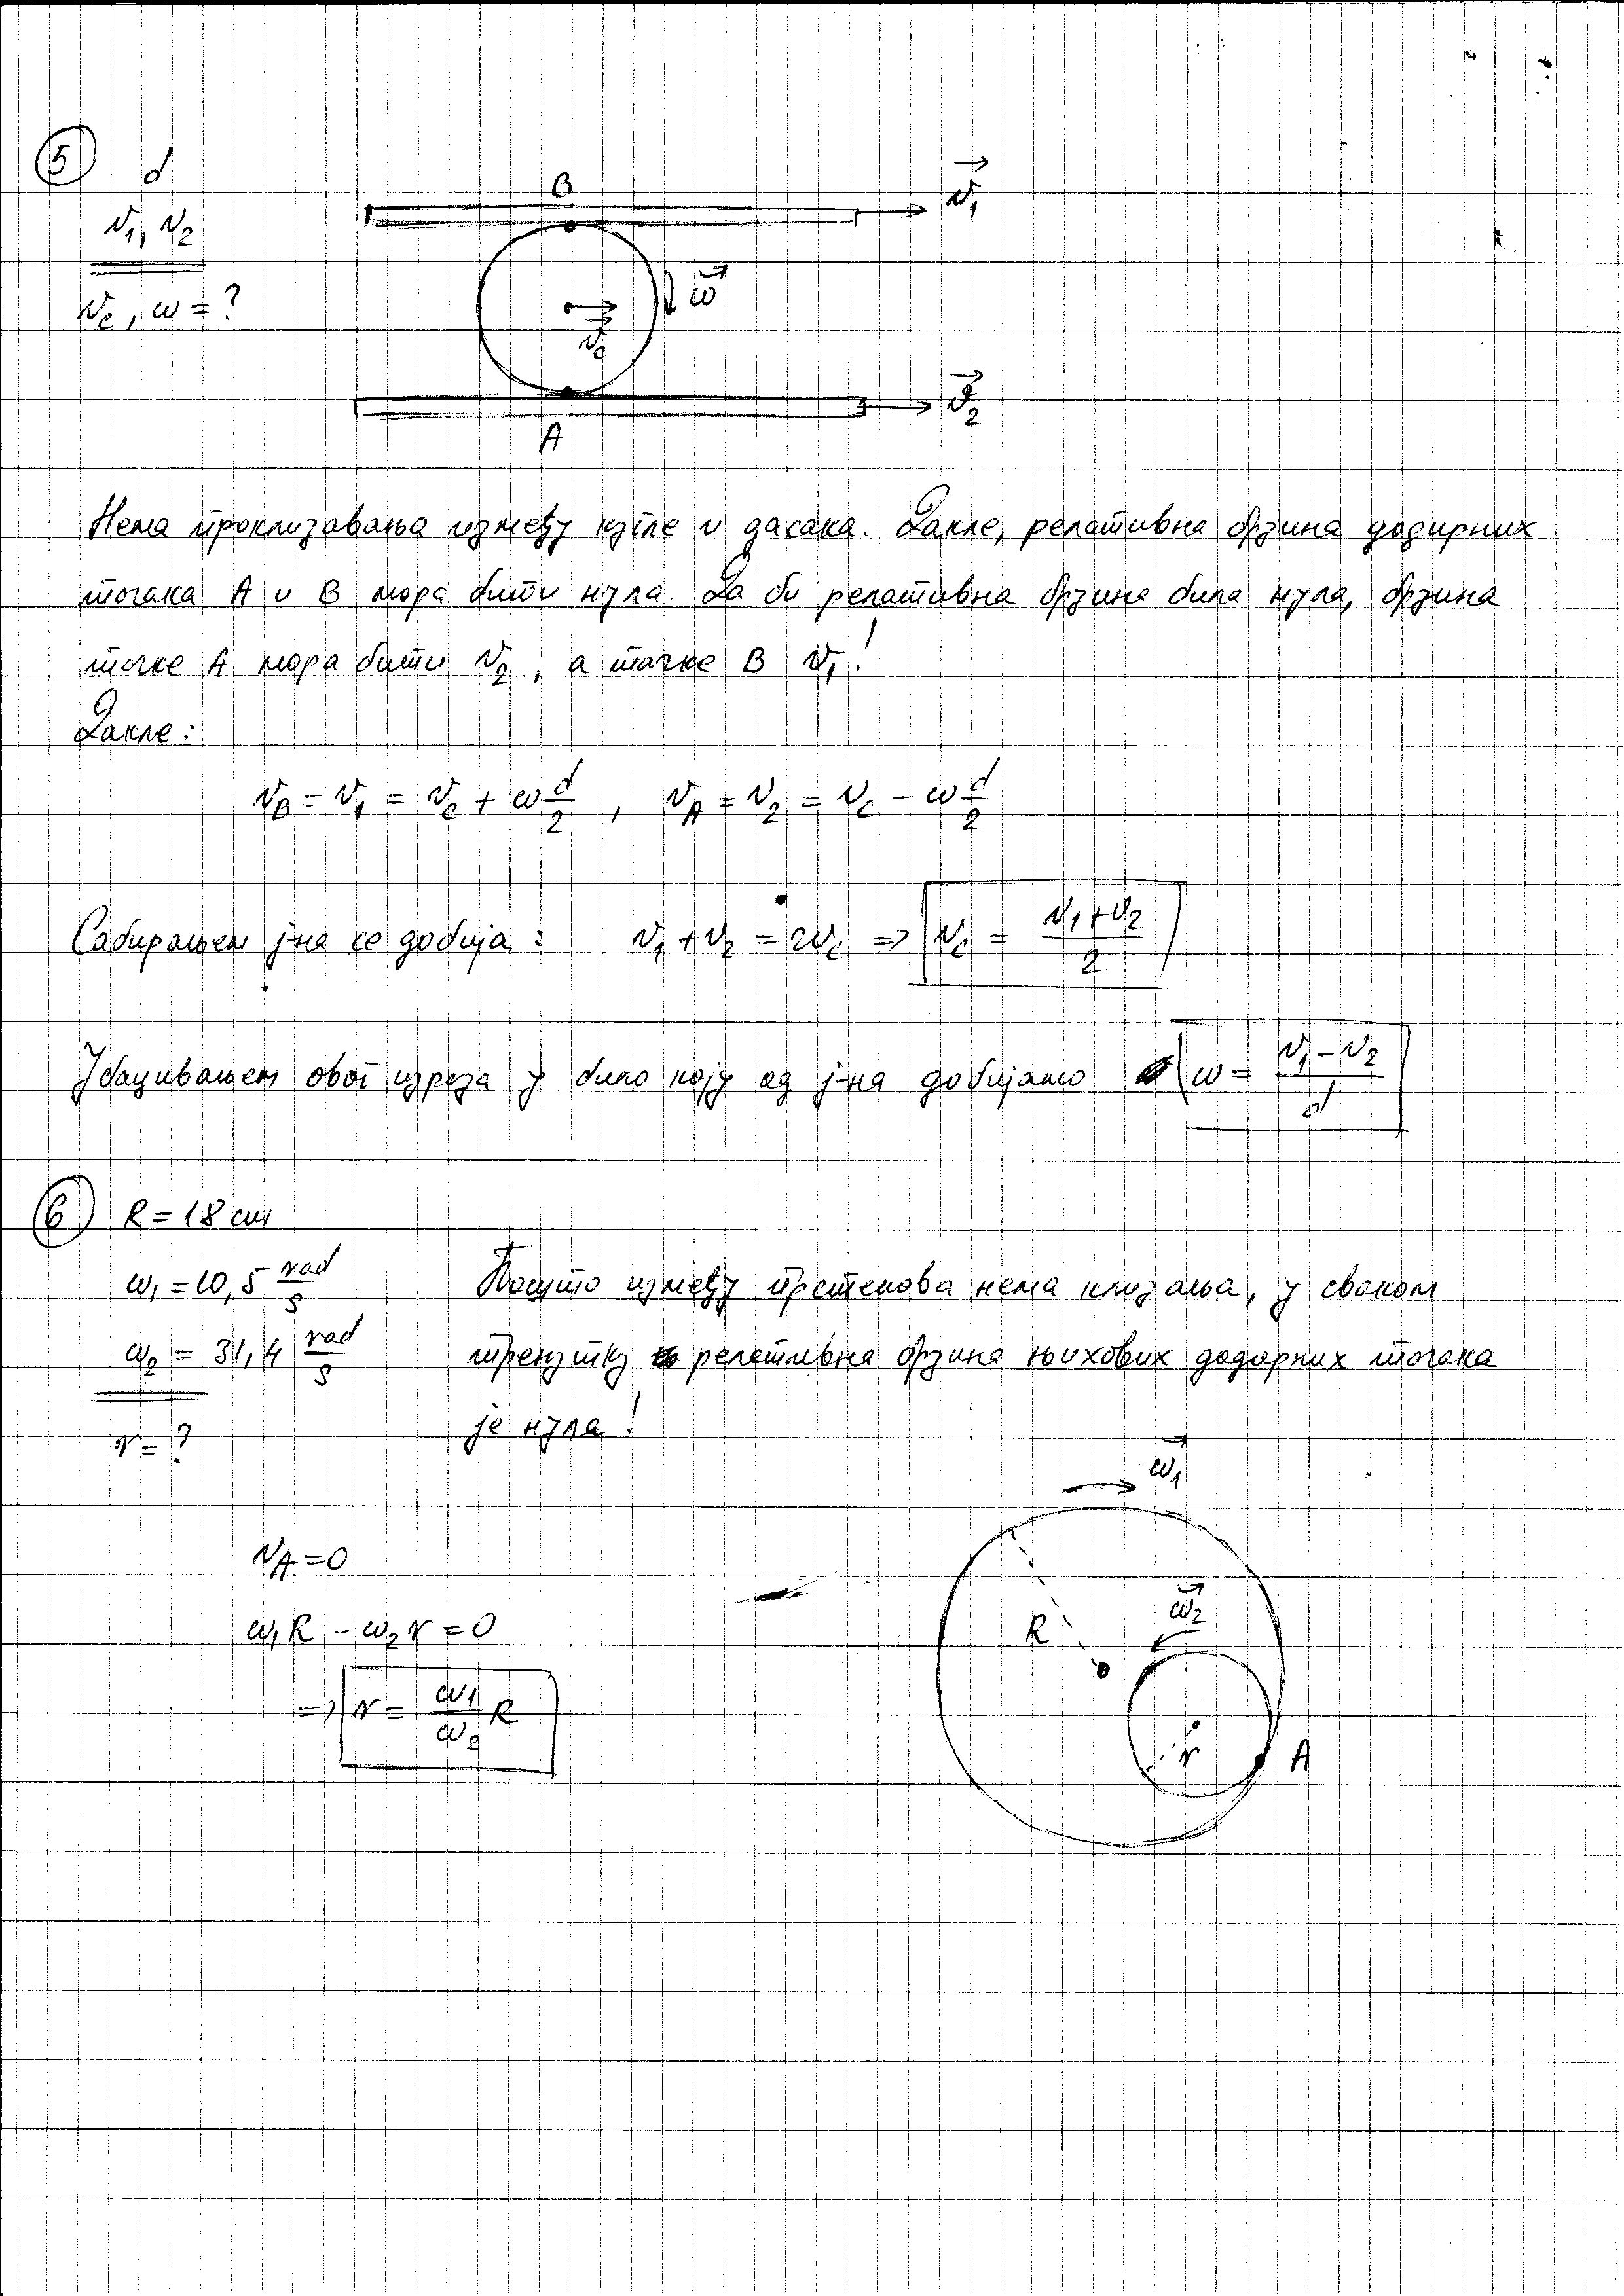 5 d
v₁, v₂
v_c, ω = ?
B
v₁
ω
v_c
v₂
A
Нема проклизавања између кугле и дасака. Дакле, релативна брзина додирних
тачака A и B мора бити нула. Да би релативна брзина била нула, брзина
тачке A мора бити v₂, а тачке B v₁!
Дакле:
v_B = v₁ = v_c + ω d/2 , v_A = v₂ = v_c - ω d/2
Сабирањем ј-на се добија: v₁ + v₂ = 2v_c => v_c = (v₁ + v₂)/2
Убацивањем овог израза у било коју од ј-на добијамо ω = (v₁ - v₂)/d
6 R = 18 cm
ω₁ = 10,5 rad/s Пошто између прстенова нема клизања, у сваком
ω₂ = 31,4 rad/s тренутку релативна брзина њихових додирних тачака
r = ? је нула!
ω₁
v_A = 0
ω₂
ω₁R - ω₂r = 0
R
=> r = ω₁/ω₂ R
r
A